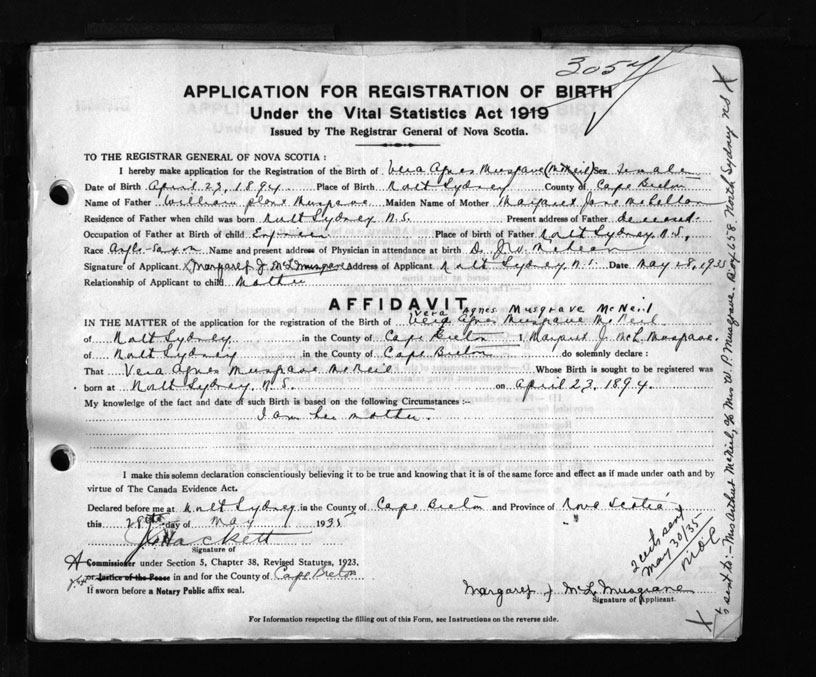 3054
APPLICATION FOR REGISTRATION OF BIRTH
Under the Vital Statistics Act 1919
Issued by The Registrar General of Nova Scotia.
TO THE REGISTRAR GENERAL OF NOVA SCOTIA :
I hereby make application for the Registration of the Birth of Vera Agnes Musgrave (McNeil) Sex Female
Date of Birth April 23, 1894 Place of Birth North Sydney County of Cape Breton
Name of Father William Musgrave Maiden Name of Mother Margaret Jane
Residence of Father when child was born North Sydney N.S. Present address of Father deceased
Occupation of Father at Birth of child Engineer Place of birth of Father North Sydney, N.S.
Race Anglo-Saxon Name and present address of Physician in attendance at birth D. McLean
Signature of Applicant X Margaret J. McL Musgrave Address of Applicant North Sydney N.S. Date May 28, 1935
Relationship of Applicant to child Mother
AFFIDAVIT
Vera Agnes Musgrave McNeil
IN THE MATTER of the application for the registration of the Birth of Vera Agnes Musgrave McNeil
of North Sydney in the County of Cape Breton I Margaret J. McL. Musgrave
of North Sydney in the County of Cape Breton do solemnly declare :
That Vera Agnes Musgrave McNeil Whose Birth is sought to be registered was
born at North Sydney, N.S. on April 23, 1894.
My knowledge of the fact and date of such Birth is based on the following Circumstances :-
I am her mother.
I make this solemn declaration conscientiously believing it to be true and knowing that it is of the same force and effect as if made under oath and by
virtue of The Canada Evidence Act.
Declared before me at North Sydney in the County of Cape Breton and Province of Nova Scotia
this 28th day of May 1935
Hackett
Signature of
A Commissioner under Section 5, Chapter 38, Revised Statutes, 1923,
or Justice of the Peace in and for the County of Cape Breton
If sworn before a Notary Public affix seal.
Margaret J. McL Musgrave
Signature of Applicant.
For Information respecting the filling out of this Form, see Instructions on the reverse side.
2 certs sent
May 30/35
X sent to:- Mrs Arthur McNeil, c/o Mrs W. P. Musgrave. Box 658. North Sydney NS X